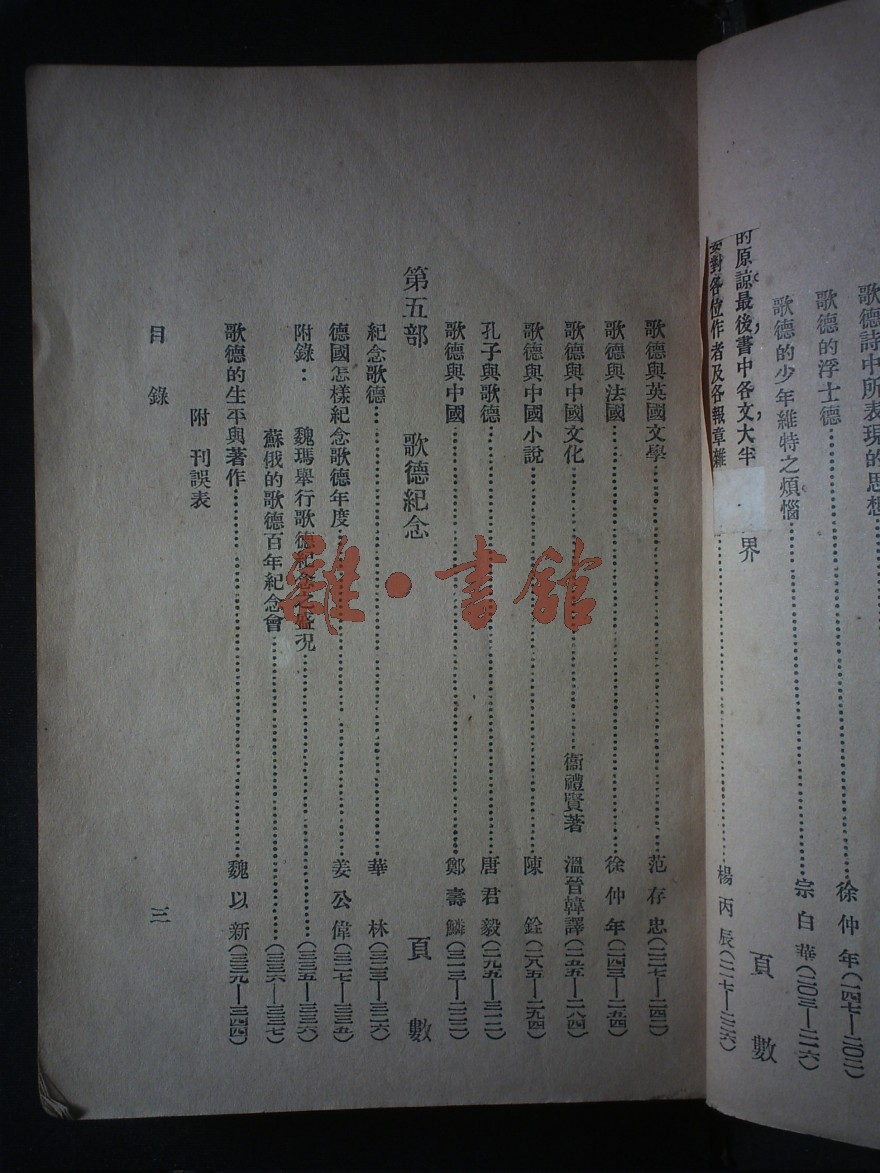 歌德詩中所表現的思想……徐仲年(一四七—二〇二)
歌德的浮士德
歌德的少年維特之煩惱……宗白華(二〇三—二一六)
的原諒最後書中各文大半
界
頁數
對各位作者及各報章雜
……楊丙辰(二一七—二二六)
歌德與英國文學……范存忠(二二七—二四二)
歌德與法國……徐仲年(二四三—二五四)
歌德與中國文化……衞禮賢著 溫晉韓譯(二五五—二八四)
歌德與中國小說……陳 銓(二八五—二九四)
孔子與歌德……唐君毅(二九五—三一二)
歌德與中國……鄭壽麟(三一三—三二二)
第五部 歌德紀念 頁數
紀念歌德……華 林(三二三—三二六)
德國怎樣紀念歌德年度……姜公偉(三二七—三三五)
附錄： 魏瑪舉行歌德紀念之盛況……(三三五—三三六)
蘇俄的歌德百年紀念會……(三三六—三三七)
歌德的生平與著作……魏以新(三三九—三四四)
附 刊誤表
目 錄 三
雒·書館